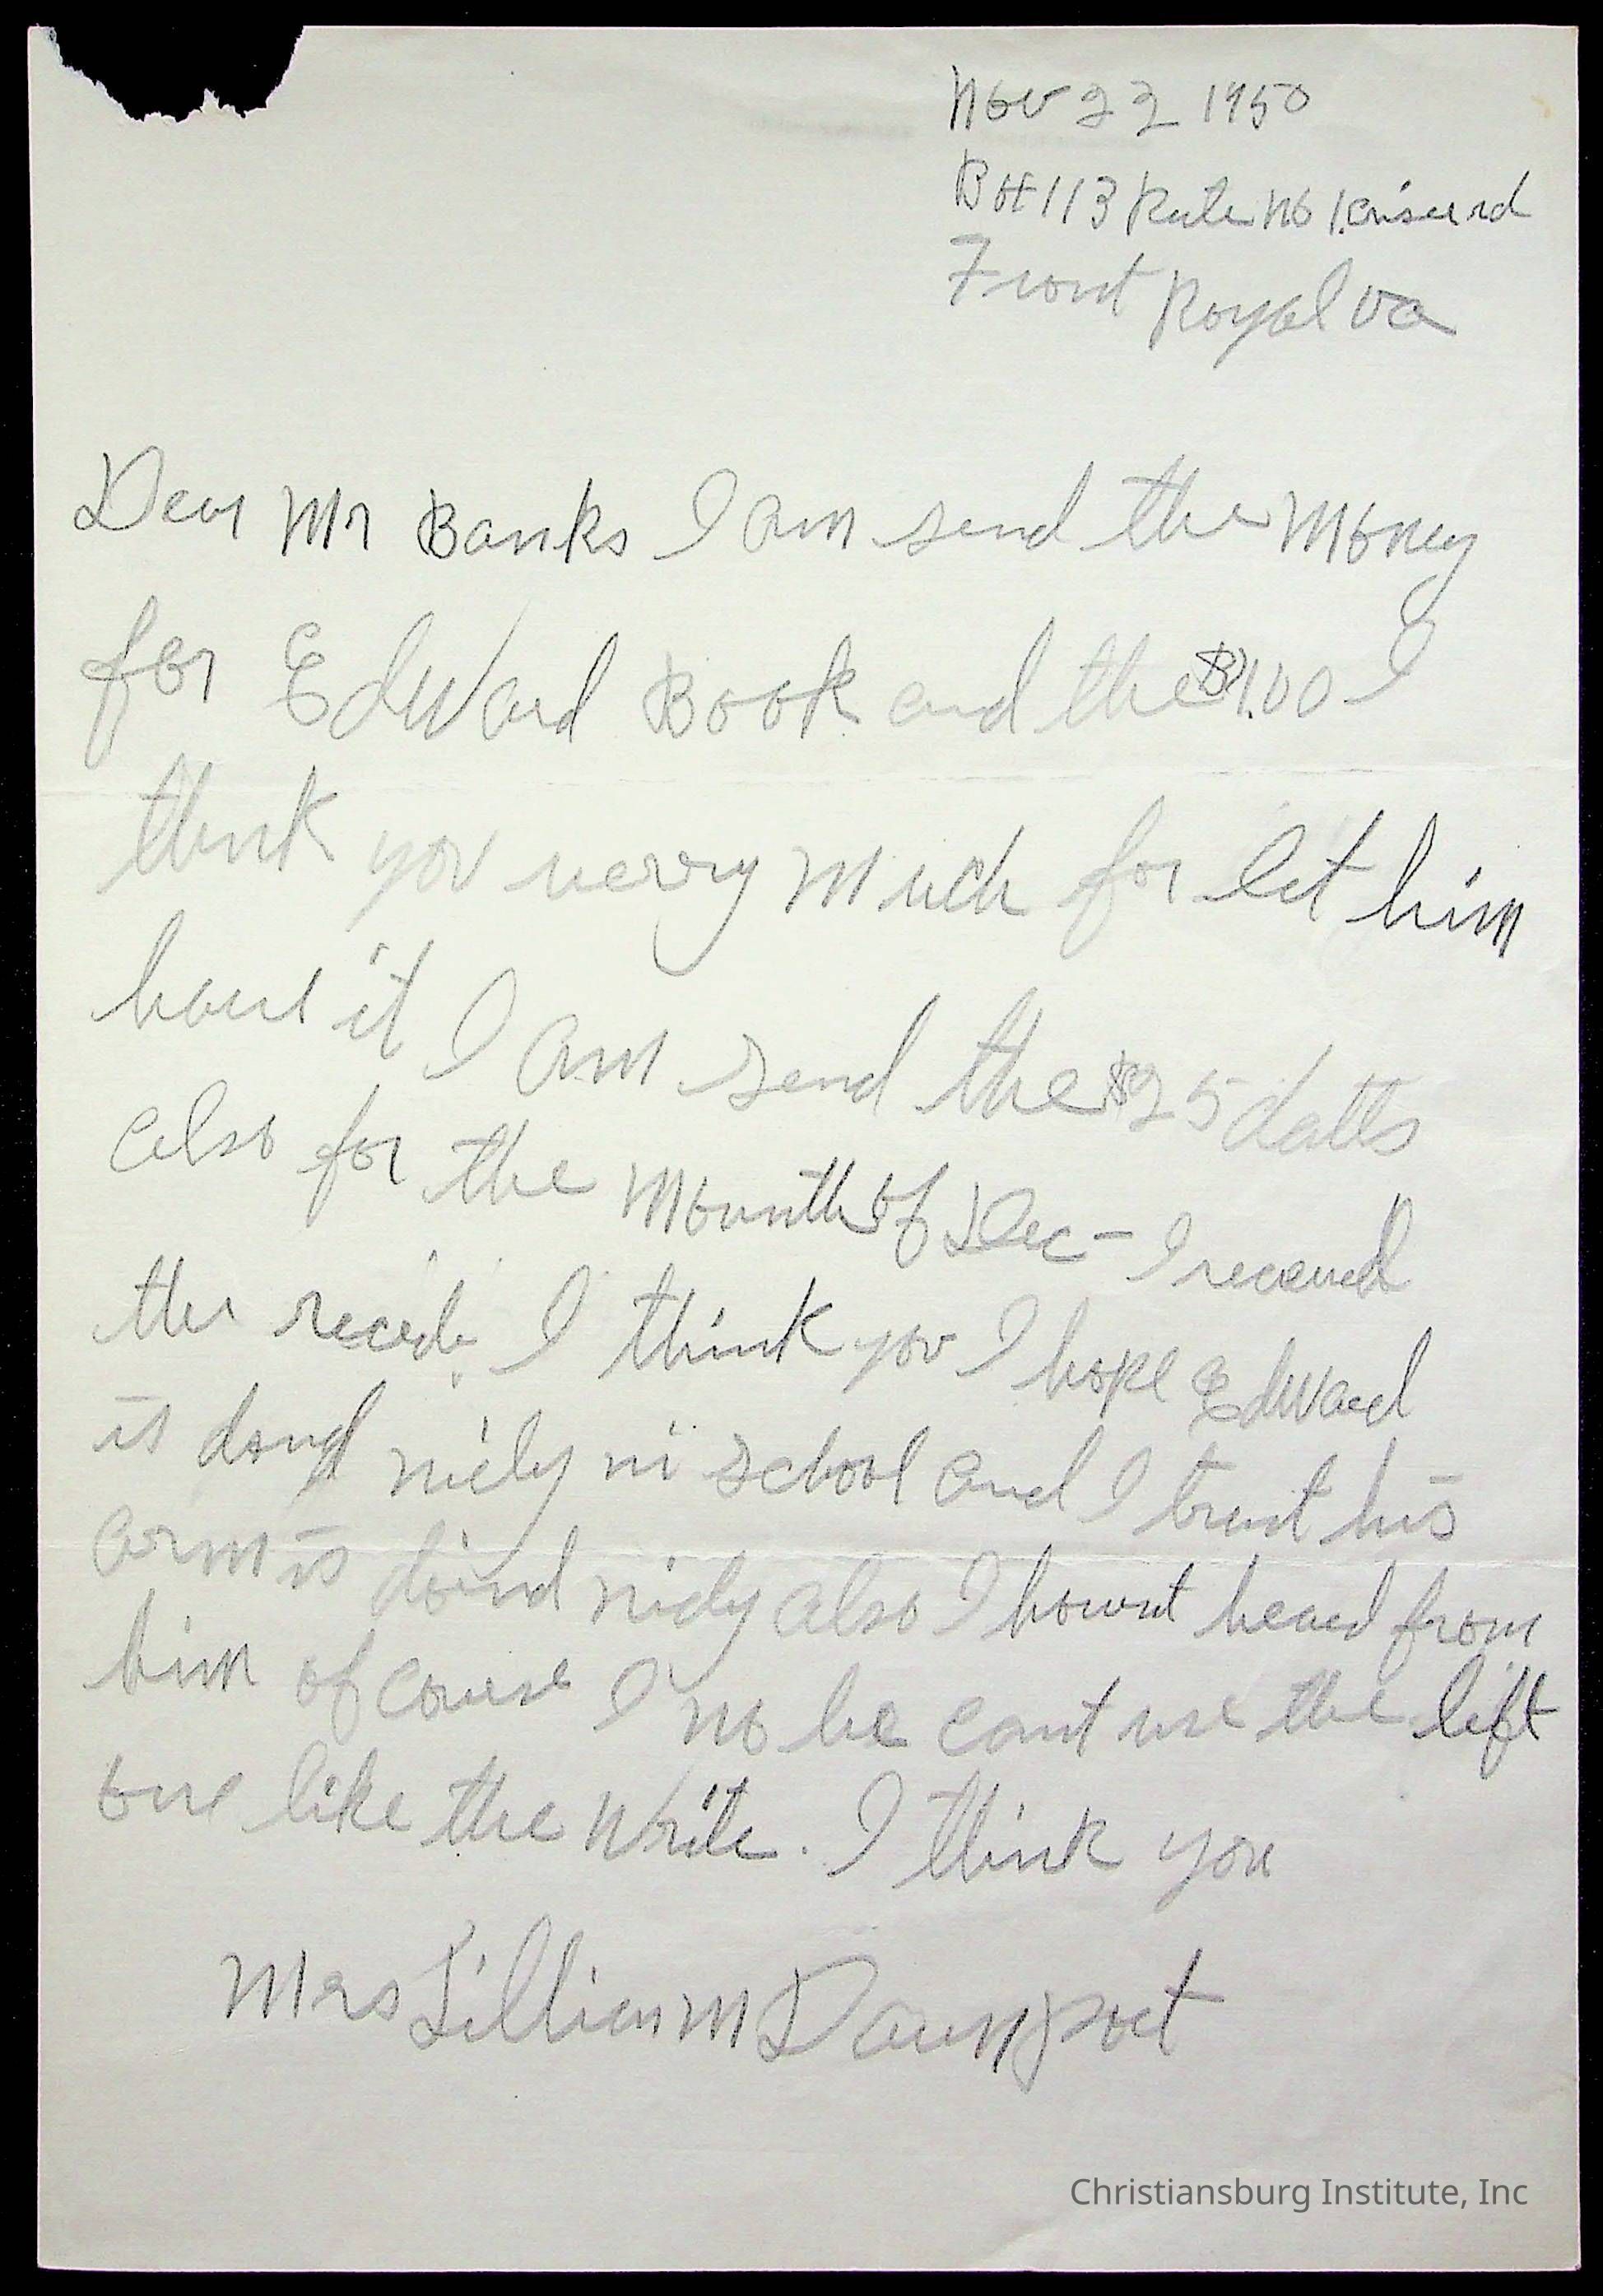 Nov 22 1950
Box 113 Rute No 1. Criser rd
Front Royal Va
Dear Mr Banks I am send the Money
for Edward Book and the $1.00 I
think you verry much for let him
have it I am send the $25 dalls
also for the Mounth of Dec - I received
the recede. I think you I hope Edward
is dond nicly in school and I trust his
arm is doind nicly also I havent heard from
him of course I no he cant use the left
one like the Write. I think you
Mrs Lillian M Davenport
Christiansburg Institute, Inc